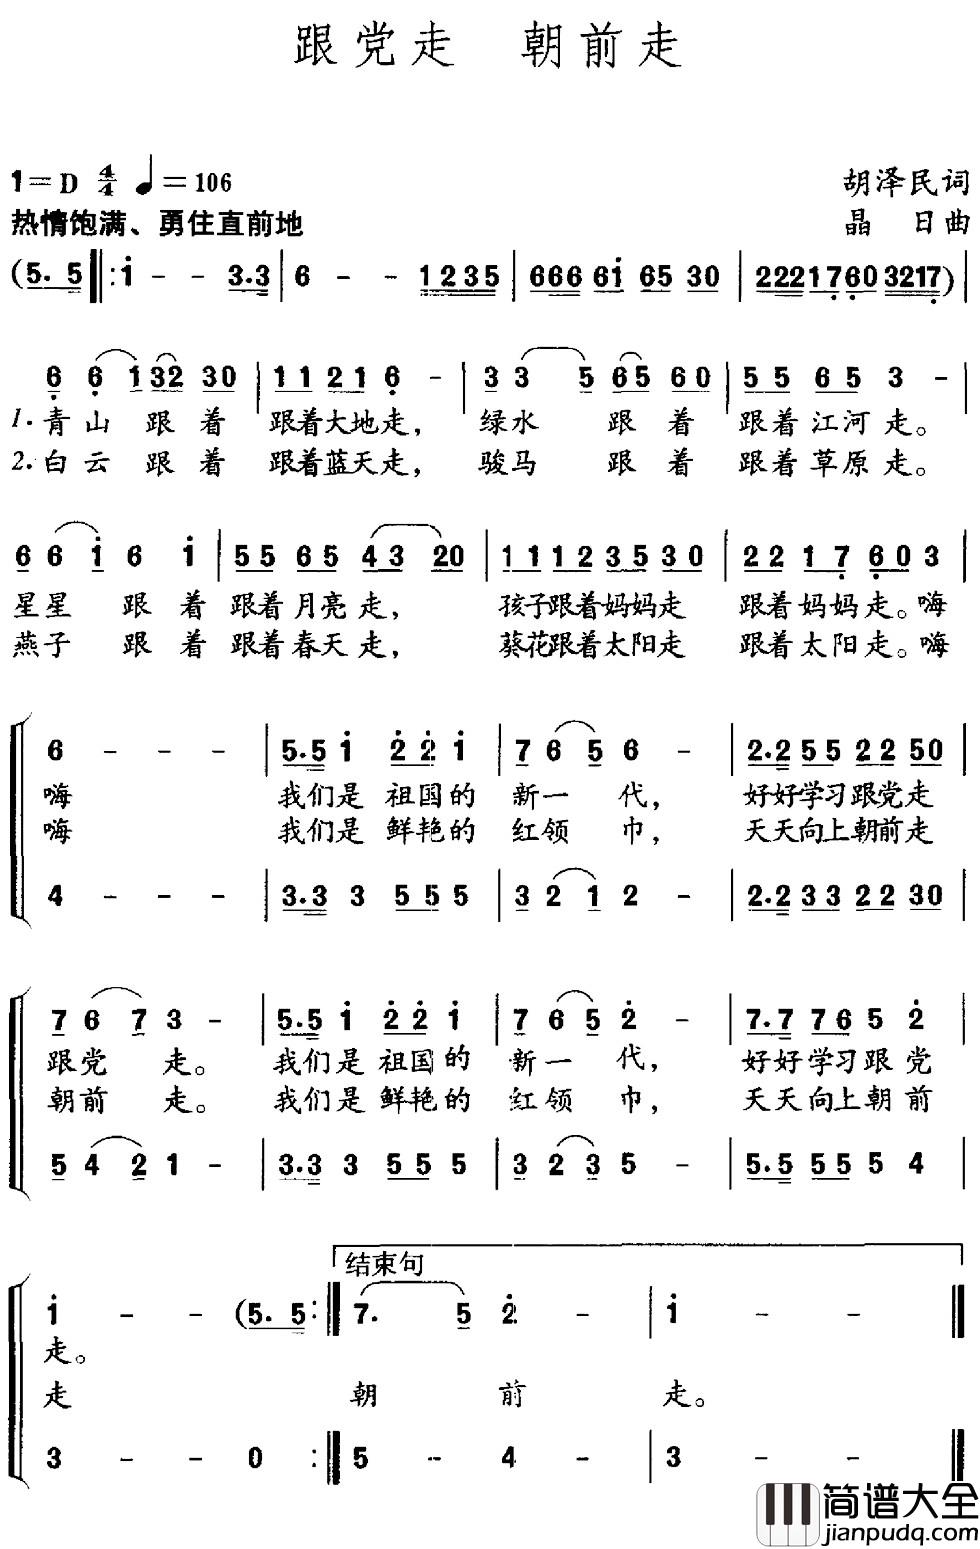 跟党走 朝前走
1=D 4/4 ♩=106
胡泽民词
热情饱满、勇住直前地
晶 日曲
(5. 5 ‖: i - - 3.3 | 6 - - 1235 | 666 6i 65 30 | 2221760 3217) |
6 6 132 30 | 11 21 6 - | 3 3 5 65 60 | 55 65 3 - |
1. 青山 跟着 跟着大地走, 绿水 跟着 跟着江河走。
2. 白云 跟着 跟着蓝天走, 骏马 跟着 跟着草原走。
6 6 i 6 i | 55 65 43 20 | 1112 3530 | 22 17 60 3 |
星星 跟着 跟着月亮走, 孩子跟着妈妈走 跟着妈妈走。嗨
燕子 跟着 跟着春天走, 葵花跟着太阳走 跟着太阳走。嗨
6 - - - | 5.5 i 2 2 i | 7 6 5 6 - | 2.2 55 22 50 |
嗨 我们是 祖国的 新一 代, 好好学习跟党走
嗨 我们是 鲜艳的 红领 巾, 天天向上朝前走
4 - - - | 3.3 3 55 5 | 3 2 1 2 - | 2.2 33 22 30 |
7 6 7 3 - | 5.5 i 22 i | 7 6 5 2 - | 7.7 76 5 2 |
跟党 走。 我们是 祖国的 新一 代, 好好学习跟党
朝前 走。 我们是 鲜艳的 红领 巾, 天天向上朝前
5 4 2 1 - | 3.3 3 55 5 | 3 2 3 5 - | 5.5 55 5 4 |
结束句
i - - (5. 5 :‖ 7. 5 2 - | i - - ‖
走。
走 朝 前 走。
3 - - 0 :‖ 5 - 4 - | 3 - - ‖
简谱大全
jianpudq.com